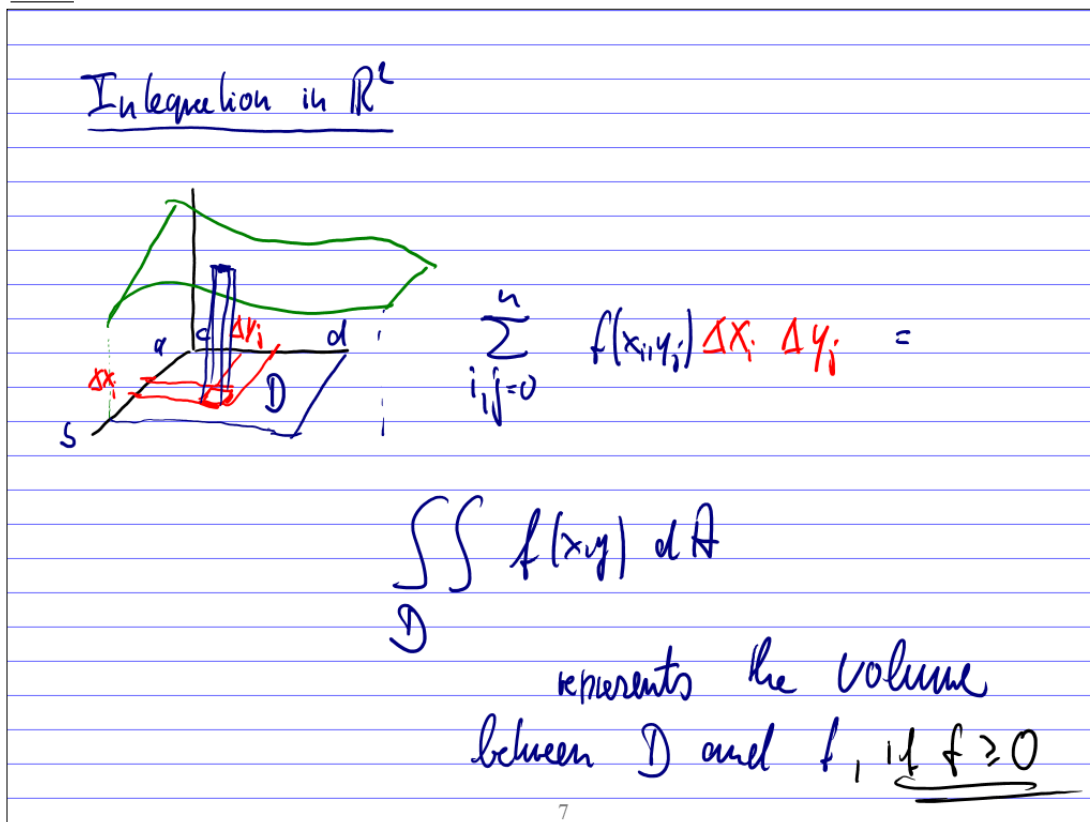 Integration in ℝ²
a c Δy_j d
Δx_i D
b
\sum_{i,j=0}^{n} f(x_i,y_j) Δx_i Δy_j =
∬_D f(x,y) dA
represents the volume
between D and f, if f ≥ 0
7